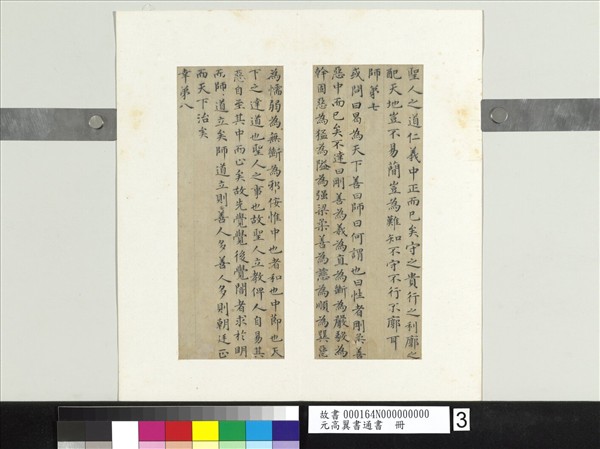 聖人之道仁義中正而已矣守之貴行之利廓之
配天地豈不易簡豈為難知不守不行不廓耳
師第七
或問曰曷為天下善曰師曰何謂也曰性者剛柔善
惡中而已矣不達曰剛善為義為直為斷為嚴毅為
幹固惡為猛為隘為强梁柔善為慈為順為巽惡
為懦弱為無斷為邪佞惟中也者和也中節也天
下之達道也聖人之事也故聖人立教俾人自易其
惡自至其中而止矣故先覺覺後覺闇者求於明
而師道立矣師道立則善人多善人多則朝廷正
而天下治矣
幸第八
故書 000164N000000000
元高翼書通書 冊
3